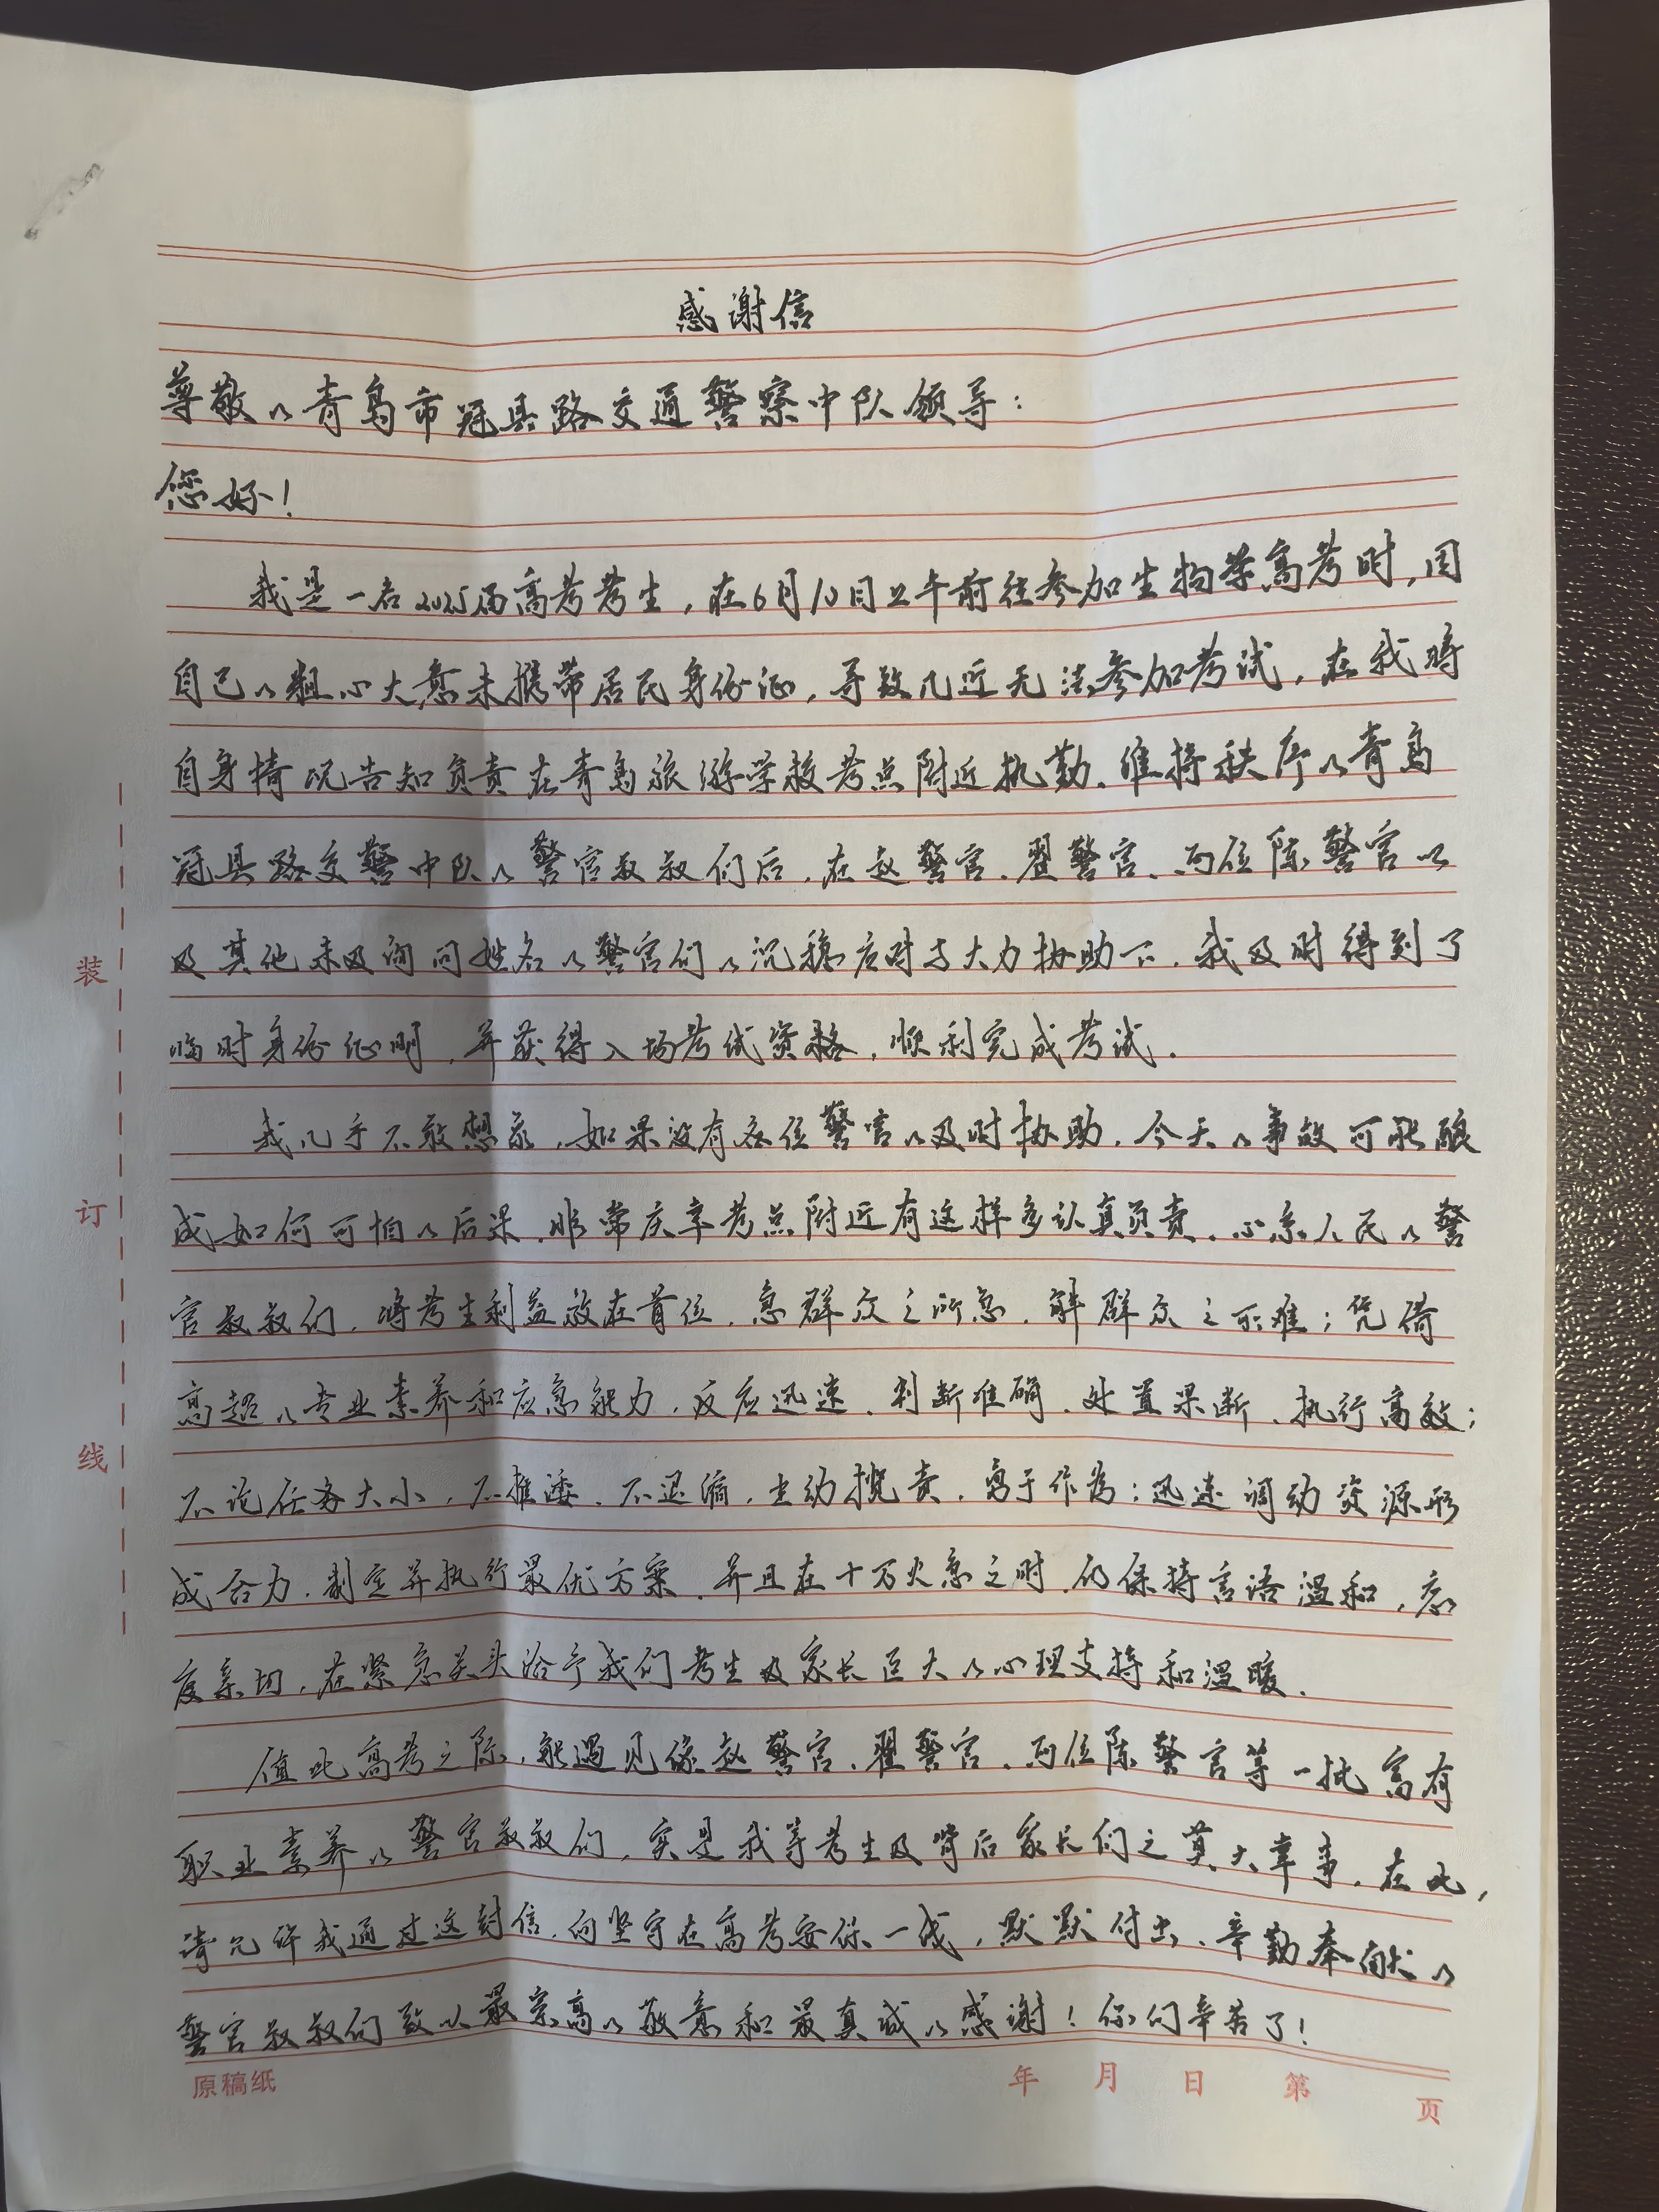 感谢信
尊敬的青岛市冠县路交通警察中队领导：
您好！
我是一名2025届高考考生，在6月10日上午前往参加生物学高考时，因
自己的粗心大意未携带居民身份证，导致几近无法参加考试，在我将
自身情况告知负责在青岛旅游学校考点附近执勤、维持秩序的青岛
冠县路交警中队的警官叔叔们后，在赵警官、翟警官、两位陈警官以
及其他未及询问姓名的警官们的沉稳应对与大力协助下，我及时得到了
临时身份证明，并获得入场考试资格，顺利完成考试。
我几乎不敢想象，如果没有各位警官的及时协助，今天的事故可能酿
成如何可怕的后果，非常庆幸考点附近有这样多认真负责、心系人民的警
官叔叔们，将考生利益放在首位，急群众之所急，解群众之所难；凭借
高超的专业素养和应急能力，反应迅速、判断准确、处置果断、执行高效；
不论任务大小，不推诿、不退缩，主动揽责，勇于作为；迅速调动资源形
成合力，制定并执行最优方案，并且在十万火急之时，仍保持言语温和，态
度亲切，在紧急关头给予我们考生及家长巨大的心理支持和温暖。
值此高考之际，能遇见像赵警官、翟警官、两位陈警官等一批富有
职业素养的警官叔叔们，实是我等考生及背后家长们之莫大幸事，在此，
请允许我通过这封信，向坚守在高考安保一线，默默付出、辛勤奉献的
警官叔叔们致以最崇高的敬意和最真诚的感谢！你们辛苦了！
装
订
线
原稿纸
年 月 日 第 页